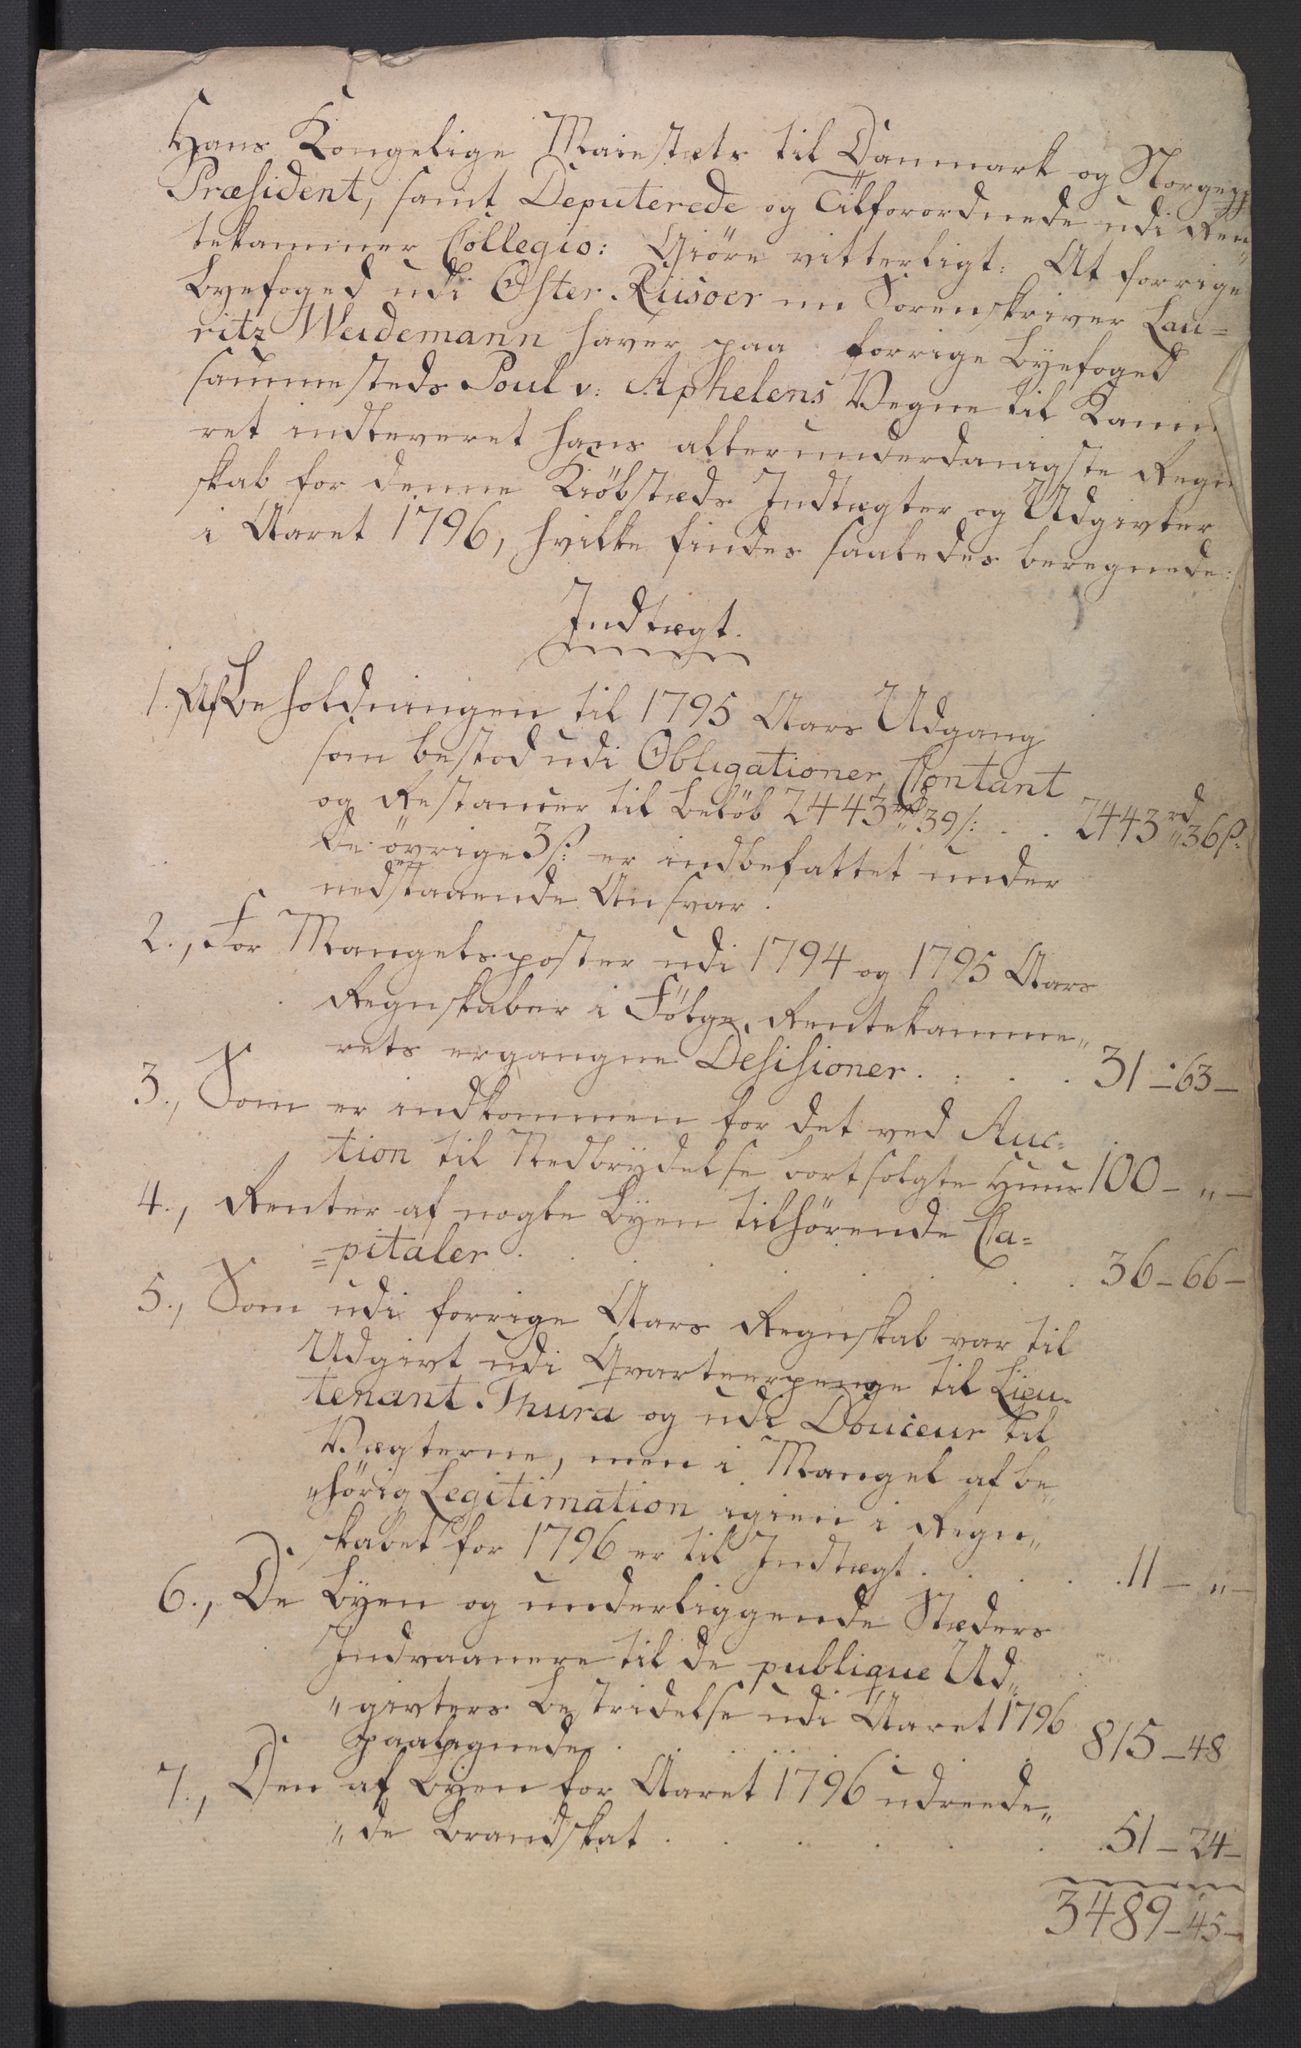 Hans Kongelige Maiestæts til Danmark og Norges
Præsident, samt Deputerede og Tilforordnede udi Ren„
tekammer Collegio: Giöre vitterligt: At forrige
Byefoged udi Öster-Riisoer nu Sorenskriver Lau=
ritz Weidemann haver paa forrige Byefoged
sammesteds Poul v: Aphelens Vegne til Kamm
ret indleveret hans allerunderdanigste Regn
skab for denne Kiöbstæds Indtægter og Udgivter
i Aaret 1796, hvilke findes saaledes beregnede:
Indtægt.
1. Af Beholdningen til 1795 Aars Udgang
som bestod udi Obligationer, Contant
og Restancer til Belöb 2443 rd „ 39 ß: . . . 2443 rd „ 36 ß:
de övrige 3 ß: er indbefattet under
nedstaaende Ansvar.
2., For Mangelsposter udi 1794 og 1795 Aars
Regnskaber i Fölge Rentekamme„
rets ergangne Desisioner . . . . 31 – 63 –
3., Som er indkommen for det ved Auc=
tion til Nedbrydelse bortsolgte Huus 100 – „ –
4., Renter af nogle Byen tilhörende Ca=
=pitaler . . . . . . . 36 – 66 –
5., Som udi forrige Aars Regnskab var til
Udgivt udi Qvarteerpenge til Lieu„
tenant Thura og udi Douceur til
Vægterne, men i Mangel af be„
„hörig Legitimation igien i Regn„
skabet for 1796 er til Indtægt . . . . . 11 – „ –
6., De Byen og underliggende Stæders
Indvaanere til de publique Ud„
„givters Bestridelse udi Aaret 1796
paalignede . . . . . . 815 – 48
7., Den af Byen for Aaret 1796 udreede„
„de Brandskat . . . . . . 51 – 24 –
3489 – 45 –